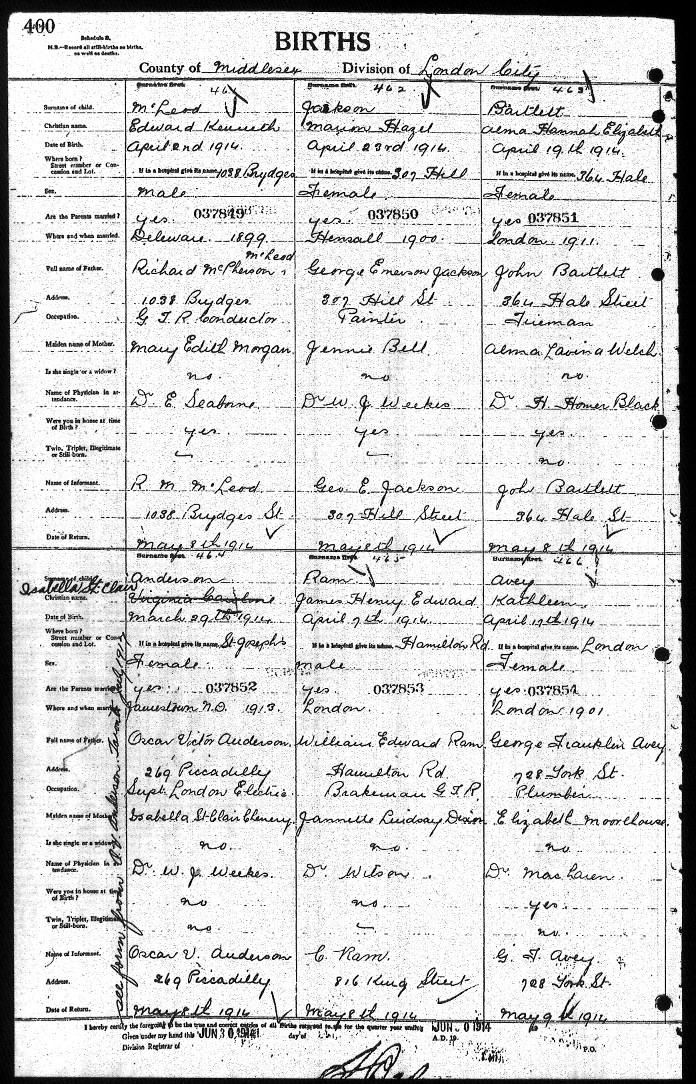 400
Schedule B.
N.B.—Record all still-births as births, as well as deaths.
BIRTHS
County of Middlesex Division of London City
46 462 463
Surname of child. McLeod Jackson Bartlett
Christian name. Edward Kenneth Marion Hazel Alma Hannah Elizabeth
Date of Birth. April 2nd 1914. April 23rd 1914. April 19th 1914.
Where born? Street number or Concession and Lot. If in a hospital give its name. 1038 Brydges If in a hospital give its name. 307 Hill If in a hospital give its name. 364 Hale
Sex. Male Female Female
Are the Parents married? yes. 037849 yes. 037850 yes 037851
Where and when married. Delaware 1899 Hensall 1900. London 1911.
McLeod
Full name of Father. Richard McPherson George Emerson Jackson John Bartlett
Address. 1038 Brydges 307 Hill St 364 Hale Street
Occupation. G T R Conductor Painter Fireman
Maiden name of Mother. Mary Edith Morgan Jennie Bell Alma Lavina Welch
Is she single or a widow? no. no no.
Name of Physician in attendance. Dr E. Seaborne Dr W. J. Weekes Dr H. Homer Black
Were you in home at time of Birth? yes. yes yes.
Twin, Triplet, Illegitimate or Still-born. no
Name of Informant. R M McLeod Geo E. Jackson John Bartlett
Address. 1038 Brydges St. 307 Hill Street 364 Hale St
Date of Return. May 8th 1914 May 8th 1914 May 8th 1914
464 465 466
Surname of child. Anderson Ram Avey
Isabella St. Clair
Christian name. Virginia Caroline James Henry Edward Kathleen
Date of Birth. March 29th 1914. April 7th 1914 April 17th 1914
Where born? Street number or Concession and Lot. If in a hospital give its name. St. Joseph's If in a hospital give its name. Hamilton Rd. If in a hospital give its name. London
Sex. Female Male Female
Are the Parents married yes. 037852 yes. 037853 yes. 037854
Where and when married Jamestown N.D. 1913. London. London 1901
Full name of Father. Oscar Victor Anderson. William Edward Ram. George Franklin Avey
Address. 269 Piccadilly Hamilton Rd. 728 York St.
Occupation. Supt. London Electric Brakeman G.T.R. Plumber
Maiden name of Mother Isabella St Clair Jannette Lindsay Dixon Elizabeth Moorhouse.
Is she single or a widow? no. no. no.
Name of Physician in attendance. Dr W. J. Weekes. Dr Wilson Dr MacLaren.
Were you in home at time of Birth? no no. yes.
Twin, Triplet, Illegitimate or Still-born. no no.
Name of Informant. Oscar V. Anderson C. Ram. G. F. Avey.
Address. 269 Piccadilly 816 King Street 728 York St.
Date of Return. May 8th 1914 May 8th 1914. May 9th 1914
See form from O.V. Anderson
I hereby certify the foregoing to be the true and correct entries of all Births returned to me for the quarter year ending JUN 30 1914
Given under my hand this JUN 30 1914 day of A.D. 19
Division Registrar of P.O.